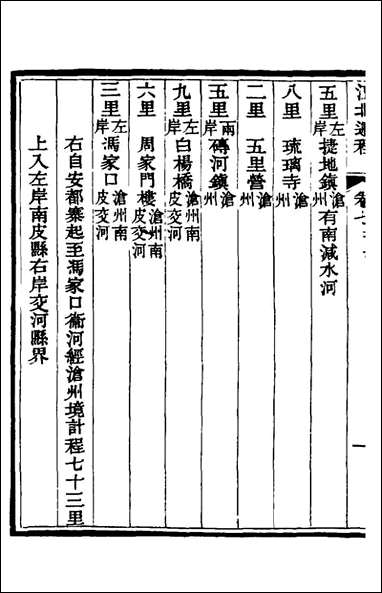 江北運程　卷七
五里　左岸　捷地鎮　滄州　有南減水河
八里　琉璃寺　滄州
二里　五里營　滄州
五里　兩岸　磚河鎮　滄州
九里　左岸　白楊橋　滄州南皮交河
六里　周家門樓　滄州南皮交河
三里　左岸　馮家口　滄州南皮交河
右自安都寨起至馮家口衞河經滄州境計程七十三里
上入左岸南皮縣右岸交河縣界